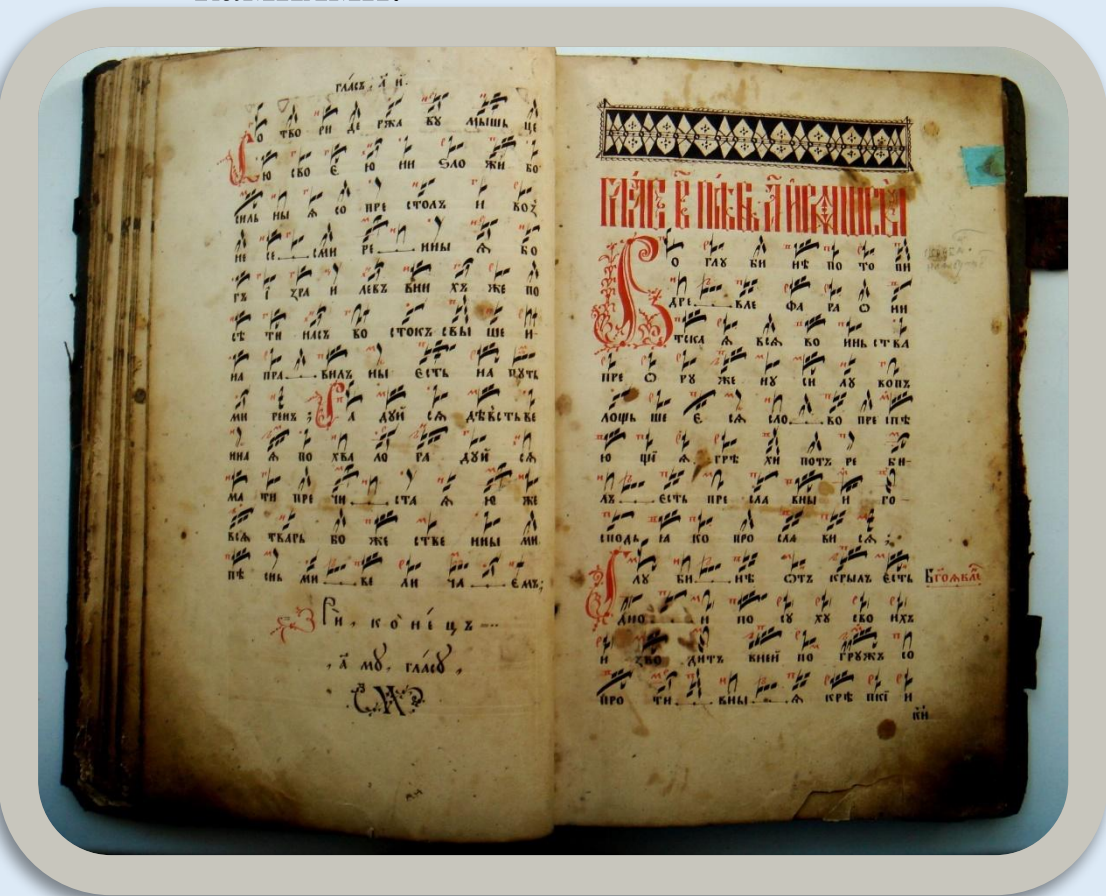 гла́съ. а҃ й.
Со тво ри де ржа ву мышь це
ю сво е ю ни ѕло жи во
силь ны ѧ со пре столъ и воз
не се сми ре нны ѧ бо
гъ ї зра и левъ вни хъ же по
сѣ ти насъ во стокъ свы ше и
на пра вилъ ны есть на путь
ми ренъ; Ра дуй сѧ дѣвсть ве
нна ѧ по хва ло ра дуй сѧ
ма ти пре чи ста ѧ ю же
всѧ тварь бо же стве нны ми
пѣ снь ми ве ли ча емъ;
ко не́ цъ
а҃ мꙋ. гла́сꙋ.
Во глꙋ би нѣ по то пи
дре вле фа ра ѻ ни
тска ѧ всѧ во инь ства
пре ѻ рꙋ же нꙋ си лꙋ
е сѧ сло во пре спѣ
ю щї ѧ грѣ хи потъ ре би
лъ есть пре сла вны и го
сподь ꙗ ко про сла ви сѧ ;
Глꙋ би нѣ ѿтъ крылъ есть
дно и по сꙋ хꙋ сво ихъ
и зво дитъ вней по грꙋжъ со
про ти вны ѧ крѣ пкї и